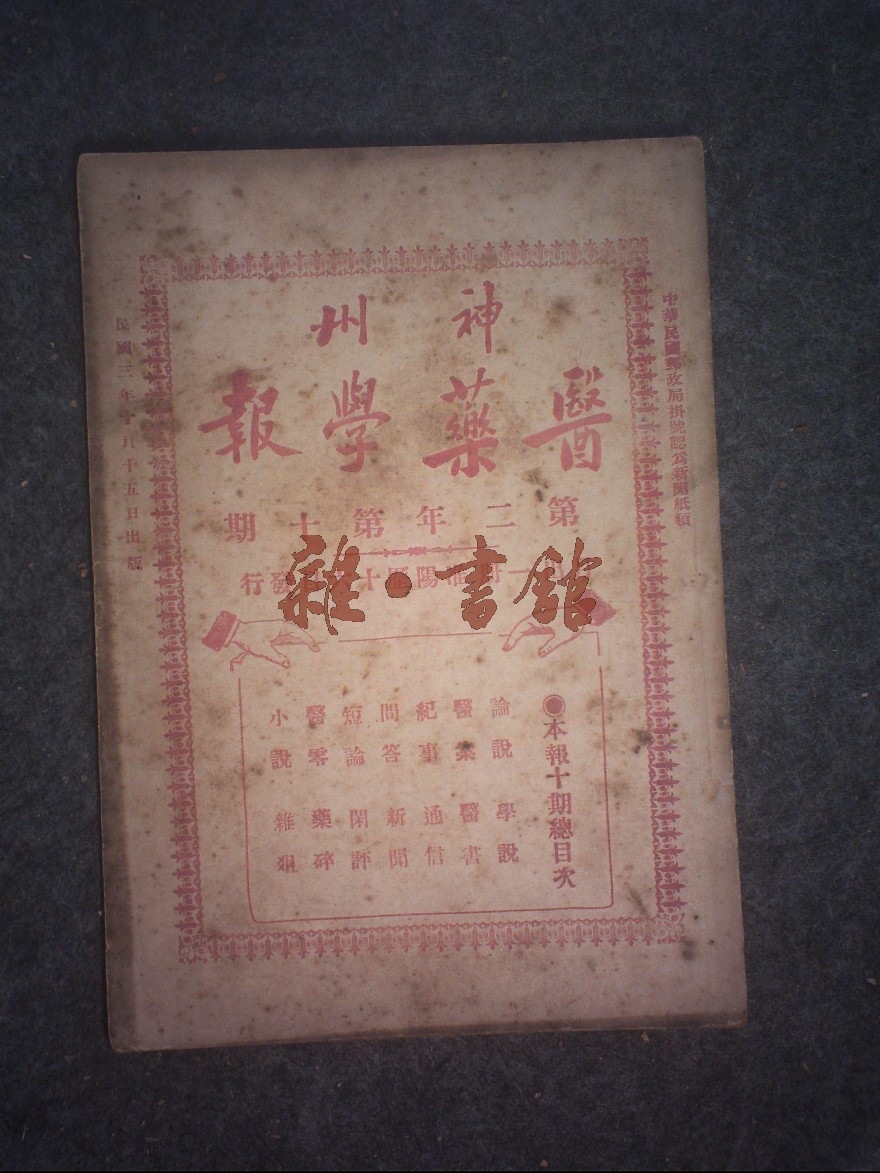 中華民國郵政局掛號認爲新聞紙類
神州
醫藥學報
第二年第十期
月一册陽歷十五日發行
雜·書館
◉本報十期總目次
論說 學說
醫案 醫書
紀事 通信
問答 新聞
短論 閑評
醫零 藥碎
小說 雜俎
民國三年十月十五日出版